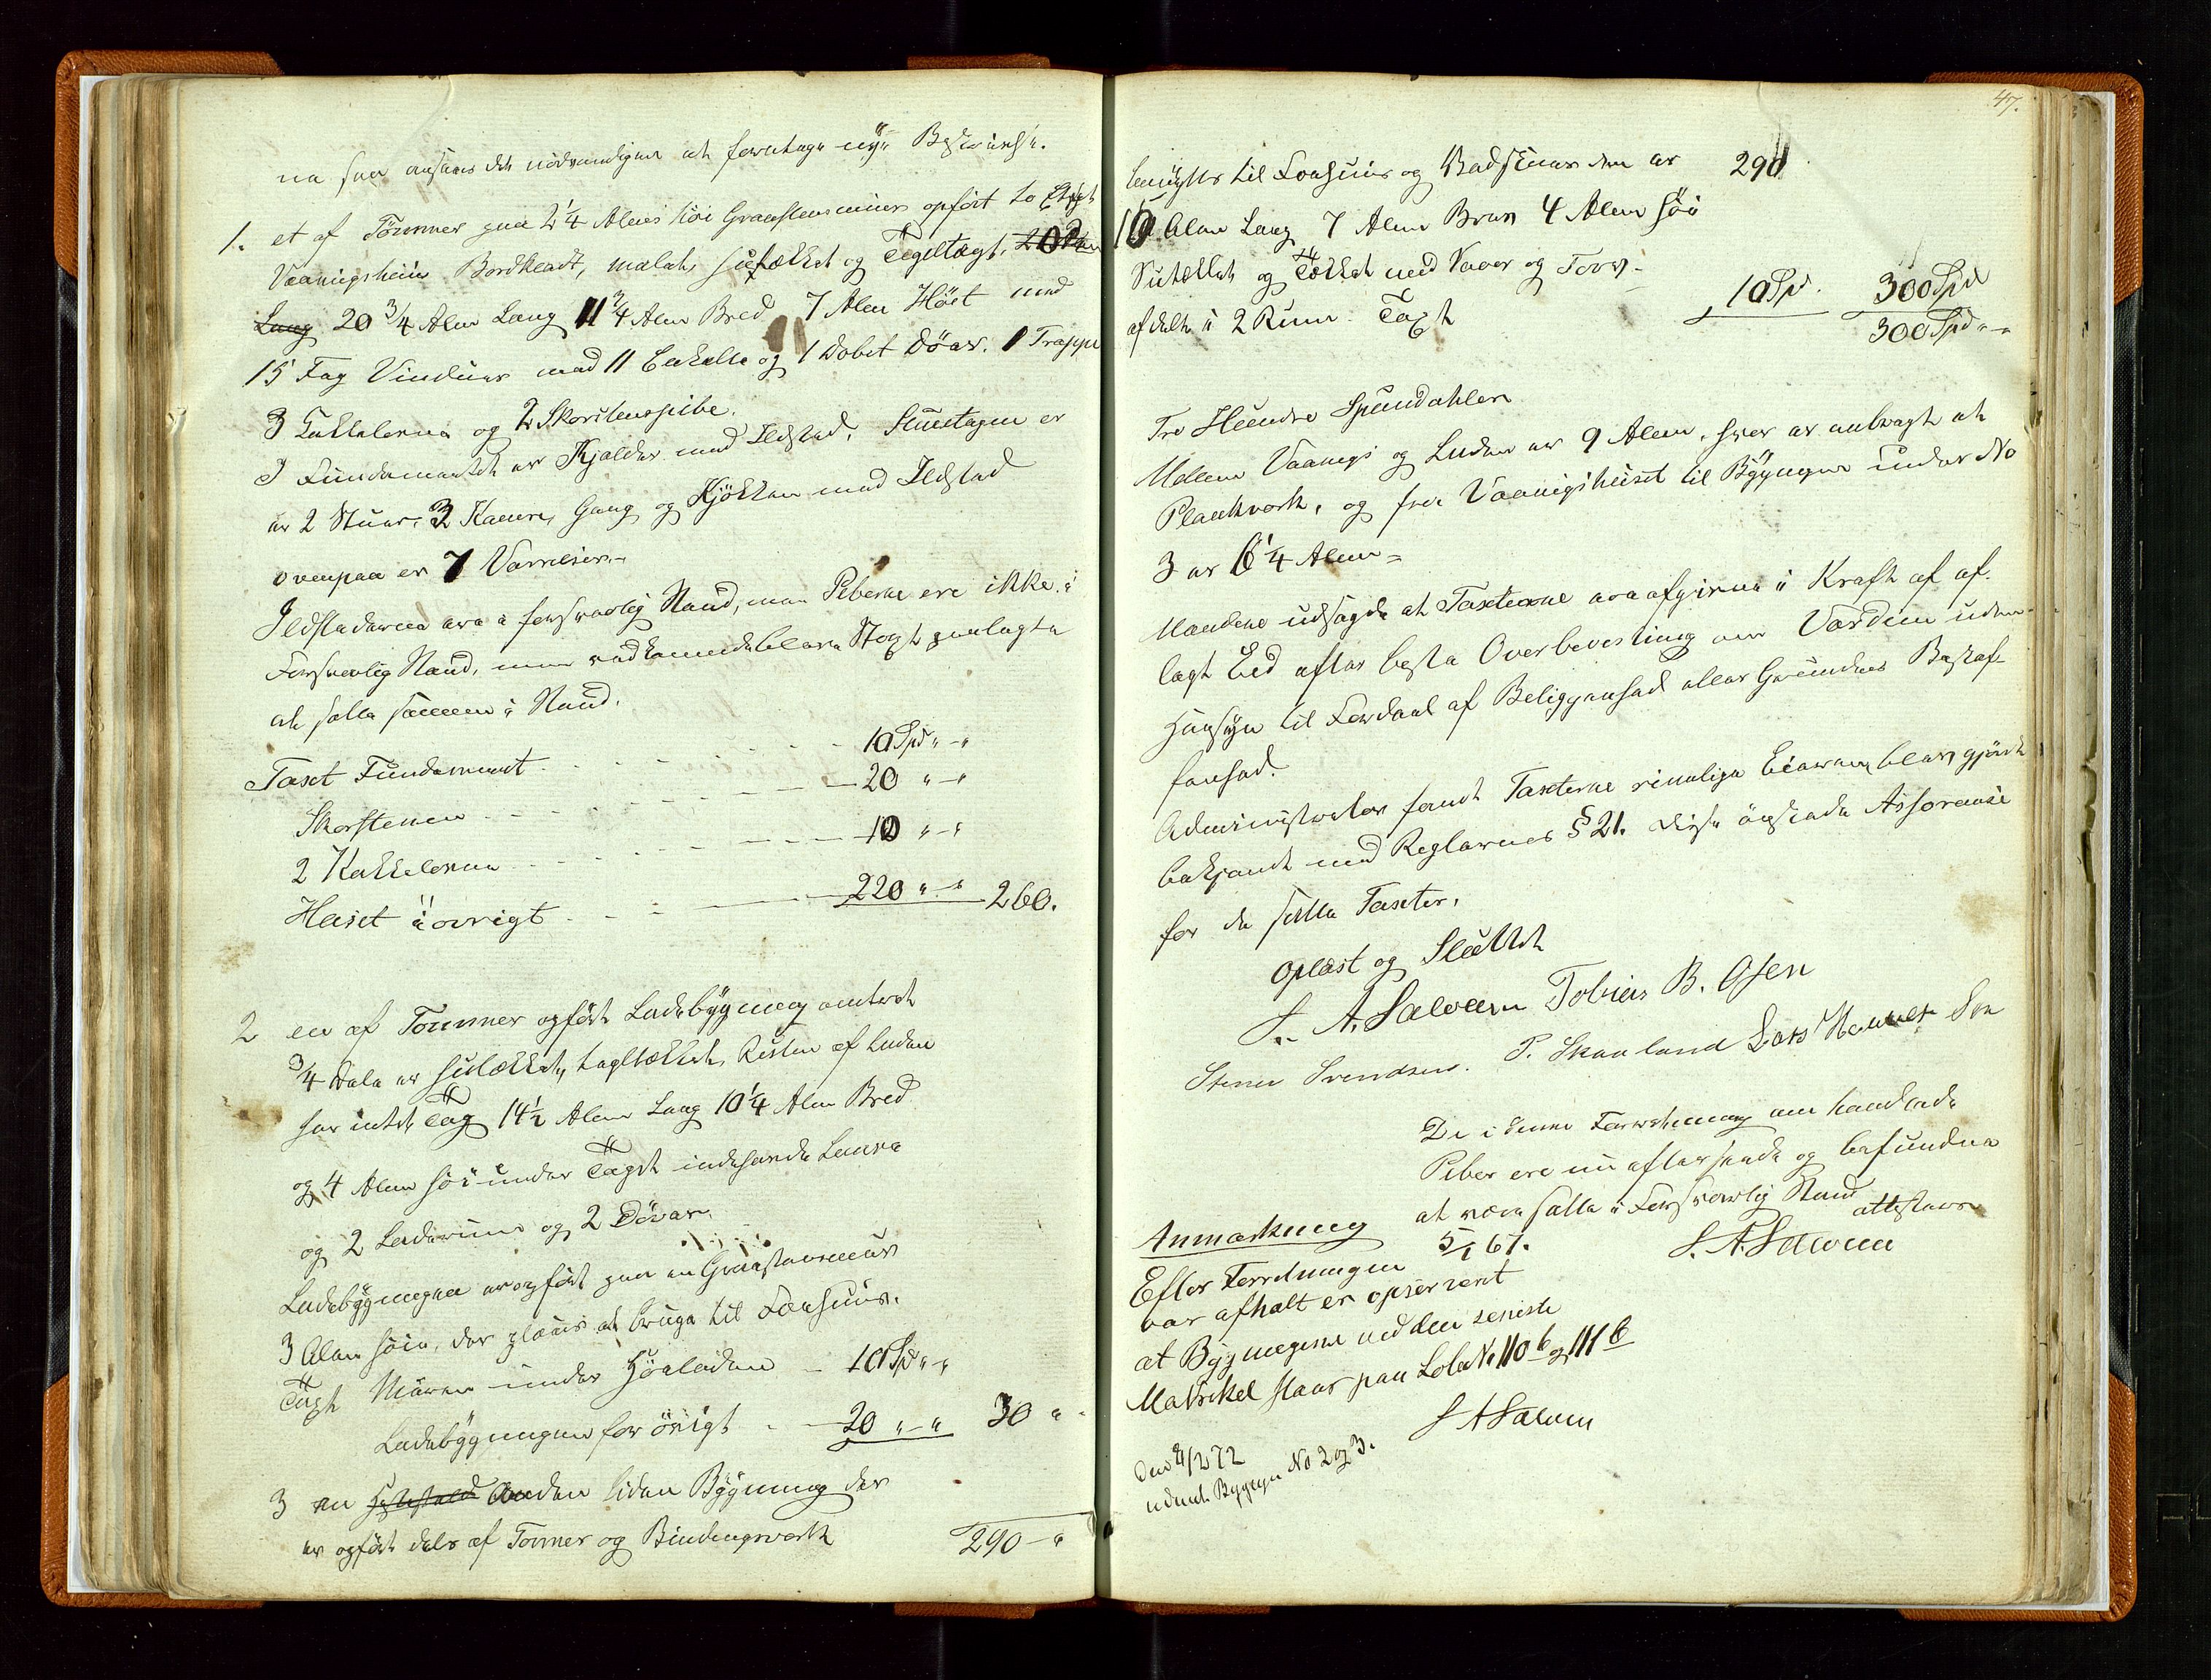 ne saa ansaaes det nødvendigen at foretage nye Beskrivelse.
1. et af Tømmer paa 2 1/4 Alens høi Graastensmuur opført to Etages
Vaaningshuus Bordklædt, malet, sutækket og Tegltagt,
Lang 20 3/4 Alen Lang 11 3/4 Alen Bred 7 Alen Høit med
15 Fag Vinduer med 11 Enkelte og 1 Dobet Döer. 1 Trappe
3 Kakkelovne og 2 Skorstenspibe.
I Fundamentet er Kjælder med Ildsted. Stueetagen er
er 2 Stuer, 3 Kamre, Gang og Kjøkken med Ildsted
ovenpaa er 7 Værelser.-
Ildstederne ere i forsvarlig Stand, men Piberne ere ikke i
Forsvarlig Stand, men vedkommende blev Strax paalagte
at sætte samme i Stand.
Taxt Fundament 10 Spd " - "
Skorstenen 20 " - "
2 Kakkelovne 10 " - "
Huset i övrigt 220 " - " 260.
2 en af Tømmer opført Ladebygning omtrent
3/4 Dele er sutækket, tegltækket, Resten af Laden
har intet Tag 14 1/2 Alen Lang 10 1/4 Alen Bred
og 4 Alen høi under Taget indeholde Laave
og 2 Laderum og 2 Döerer.
Ladebygningen er opført paa en Graastensmuur
3 Alen høie, der plæies at bruges til Fæehuus.
Taxt Muren under Høeladen - 10 Spd " - "
Ladebygningen for övrigt - 20 " - " 30 "
3 en anden liden Bygning der
er opført dels af Tømmer og Bindingsværk 290 - "
47.
benyttes til Foehuus og Badstue den er 290
10 Alen Lang 7 Alen Bred 4 Alen høi
Sutækket og Tækket med Næver og Torv -
afdelte i 2 Rum. Taxt 10 Spd. 300 Spd
300 Spd " - "
Tre Hundre Speciedahler
Mellem Vaanings og Laden er 9 Alen, hvor er anbragt et
Plankværk, og fra Vaanigshuset til Bygningen under No
3 er 6 1/4 Alen =
Mændene udsagde at Taxterne ere afgivne i Kraft af af-
lagt Eed efter beste Overbevisning om Værdien uden
Hensyn til Fordeel af Beliggenhed eller Grundens Beskaf-
fenhed.
Administrator fandt Taxterne rimelige Eieren blev gjordt
bekjendt med Reglernes § 21. Disse önskede Assurance
for de satte Taxter.
Oplæst og Sluttet
S. A. Salvesen Tobias B. Osen
Stener Svendsen. P. Skaaland Lars Hannes Søn
De i denne Forretning omhandlede
Piber ere nu efterseede og befundne
at være satte i Forsvarlig Stand
5/1 67. attesterer
S. A. Salvesen
Anmærkning
Efter Forretningen
var afholt er opserveret
at Bygningerne ved den seneste
Matrikel staar paa Løbe No 110 b og 111 b
S A Salvesen
Den 4/2 72
udmeldt Bygnigen No 2 og 3.